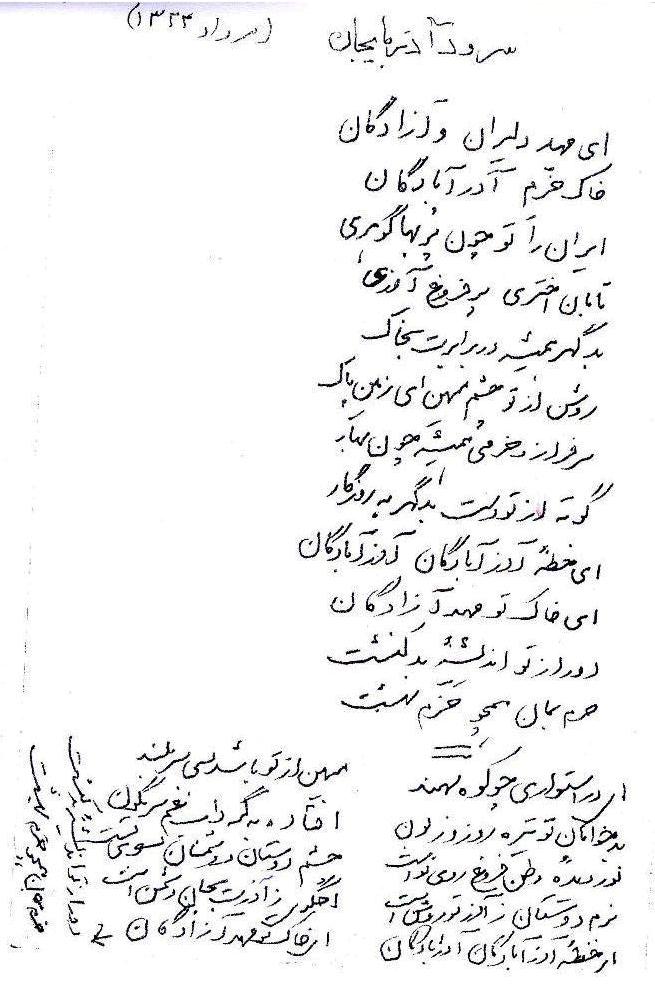 سرود آذربایجان (مرداد ۱۳۲۳)
ای مهد دلیران و آزادگان
خاک خرّم آذرآبادگان
ایران را تو چون پُر بها گوهری
تابان اختری پر فروغ آذری
بدگهر همیشه در برابرت بخاک
روشن از تو چشم میهن ای زمین پاک
سرفراز و خرمی همیشه چون بهار
کوته از تو دست بدگهر به روزگار
ای خطهٔ آذرآبادگان آذرآبادگان
ای خاک تو مهد آزادگان
دور از تو اندیشهٔ بد کنشت
خرم بمان همچو خرّم بهشت
ای در استواری چو کوه سهند
میهن از تو باشد بسی سربلند
بدخواهان تو تیره روز و زبون
افتاده به گرداب غم سرنگون
نور دیدهٔ وطن فروغ روی توست
چشم دوستان و دشمنان بسوی توست
بزم دوستان ز آذر تو روشن است
اخگری ز آذرت بجان دشمن است
ای خطهٔ آذرآبادگان آذرآبادگان
ای خاک تو مهد آزادگان
دور از تو اندیشهٔ بد کنشت
خرم بمان همچو خرم بهشت